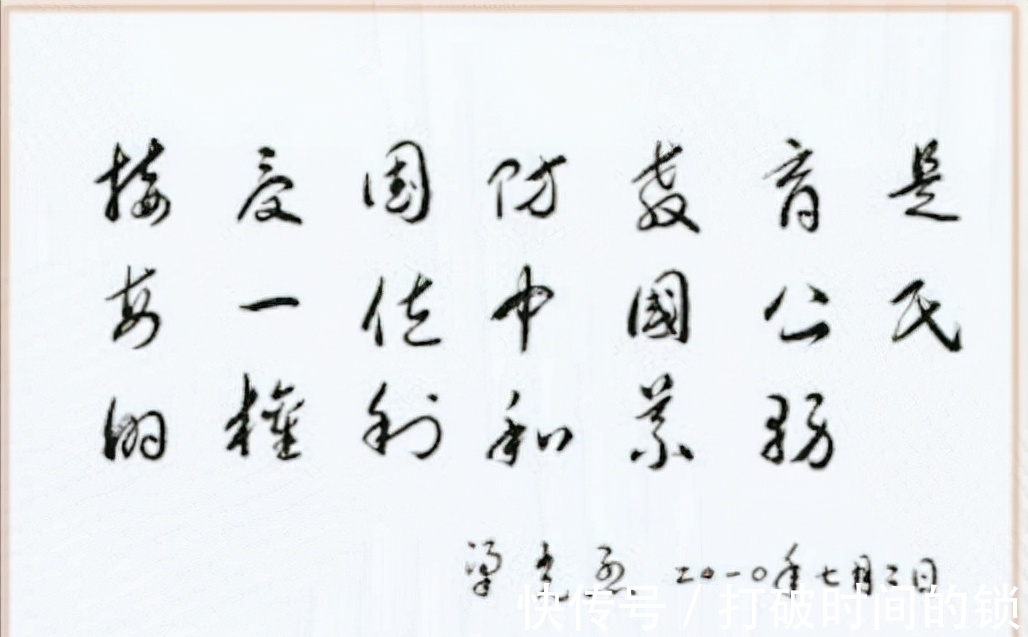 接受国防教育是
每一位中國公民
的權利和义務
梁光烈 二〇一〇年七月二日
快传号 / 打破时间的锁